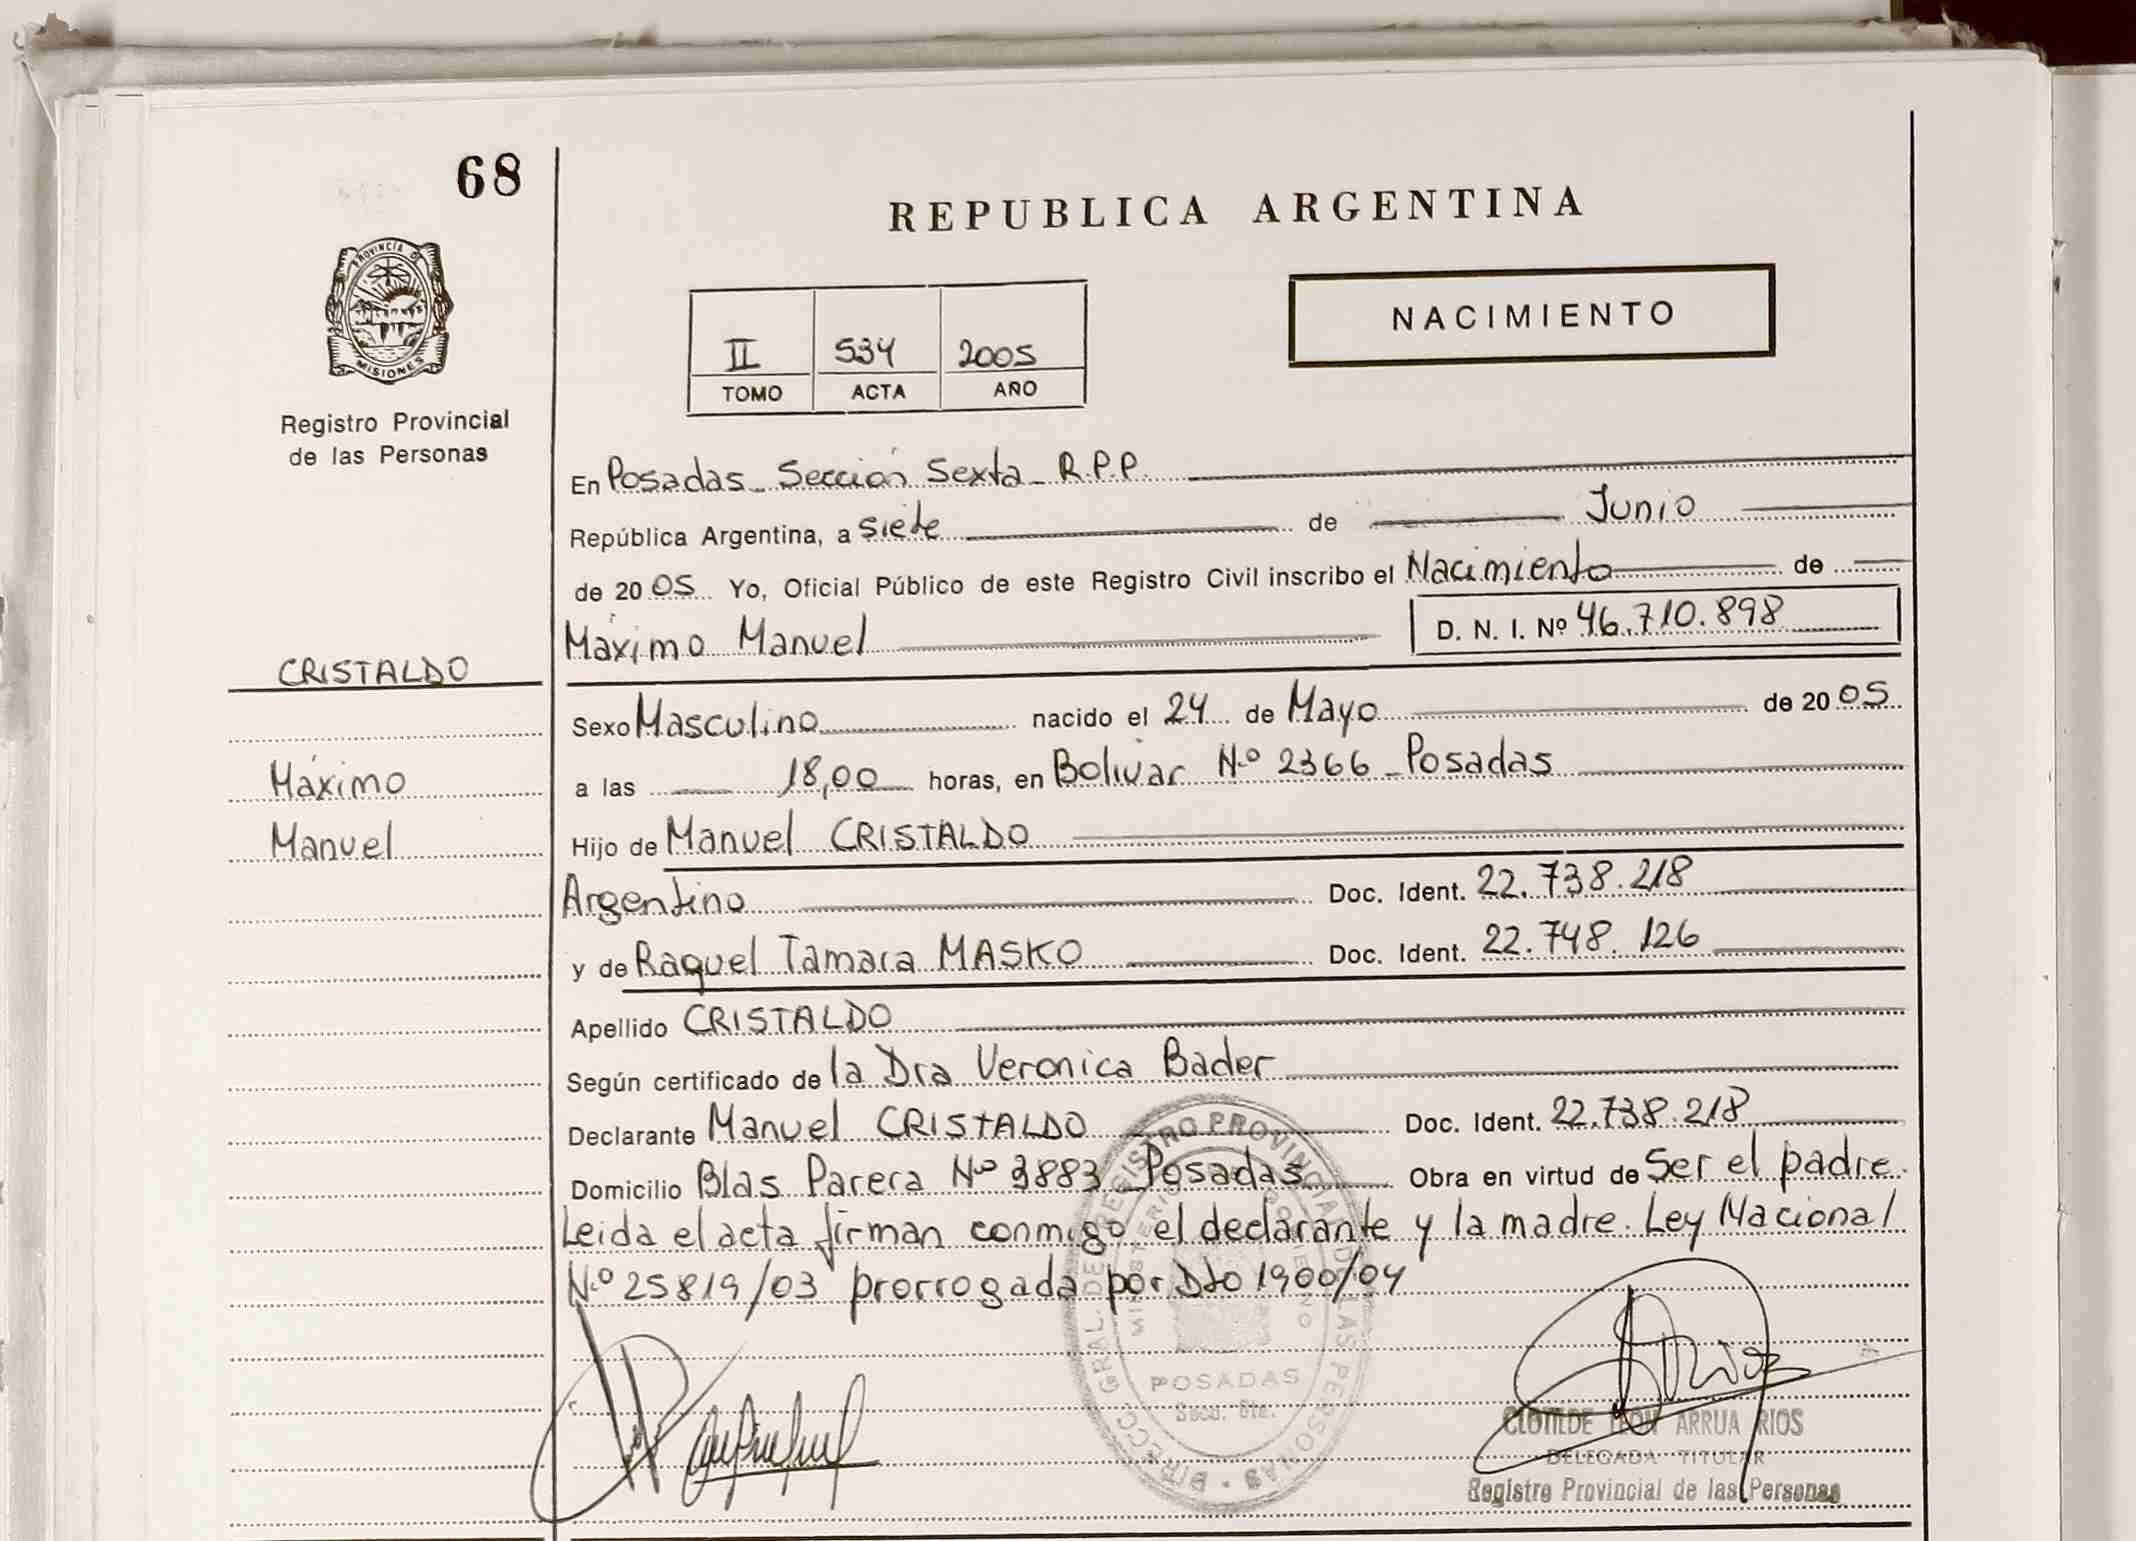 68
REPUBLICA ARGENTINA
PROVINCIA DE
MISIONES
NACIMIENTO
II 534 2005
TOMO ACTA AÑO
Registro Provincial
de las Personas
En Posadas - Sección Sexta - R.P.P.
República Argentina, a siete de Junio
de 2005 Yo, Oficial Público de este Registro Civil inscribo el Nacimiento de
Máximo Manuel D. N. I. Nº 46.710.898
CRISTALDO
Sexo Masculino nacido el 24 de Mayo de 2005
Máximo
a las 18,00 horas, en Bolívar Nº 2366 - Posadas
Manuel
Hijo de Manuel CRISTALDO
Argentino Doc. Ident. 22.738.218
y de Raquel Tamara MASKO Doc. Ident. 22.748.126
Apellido CRISTALDO
Según certificado de la Dra Veronica Bader
Declarante Manuel CRISTALDO Doc. Ident. 22.738.218
Domicilio Blas Parera Nº 3883 - Posadas Obra en virtud de Ser el padre.
Leida el acta firman conmigo el declarante y la madre. Ley Nacional
Nº 25819/03 prorrogada por Dto 1900/04
DIRECC. GRAL. DE REGISTRO PROVINCIAL DE LAS PERSONAS
MINISTERIO GOBIERNO
POSADAS
CLOTILDE LEON ARRUA RIOS
DELEGADA TITULAR
Registro Provincial de las Personas